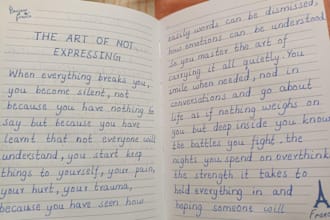 THE ART OF NOT
EXPRESSING
When everything breaks you,
you become silent, not
because you have nothing to
say but because you have
learnt that not everyone will
understand, you start keep
things to yourself, your pain,
your hurt, your trauma,
because you have seen how
easily words can be dismissed,
how emotions can be understood
So you master the art of
carrying it all quietly. You
smile when needed, nod in
conversations and go about
life as if nothing weighs on
you but deep inside you know
the battles you fight, the
nights you spend on overthink
the strength it takes to
hold everything in and
hoping someone will